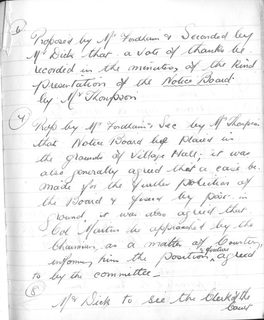 Proposed by Mr Fordham & Seconded by
Mr Dick that a vote of thanks be
recorded in the minutes, of the kind
presentation of the Notice Board
by Mr Thompson
Prop by Mr Fordham & Sec by Mr Thompson
that Notice Board be placed in
the grounds of Village Hall; it was
also generally agreed that a case be
made for the further protection of
the Board & by post in
Ground, it was also agreed that
Col Martin be approached by the
Chairman, as a matter of Courtesy
informing him the position agreed
to by the committee.
(8)
Mr Dick to see the Clerk of the
Court